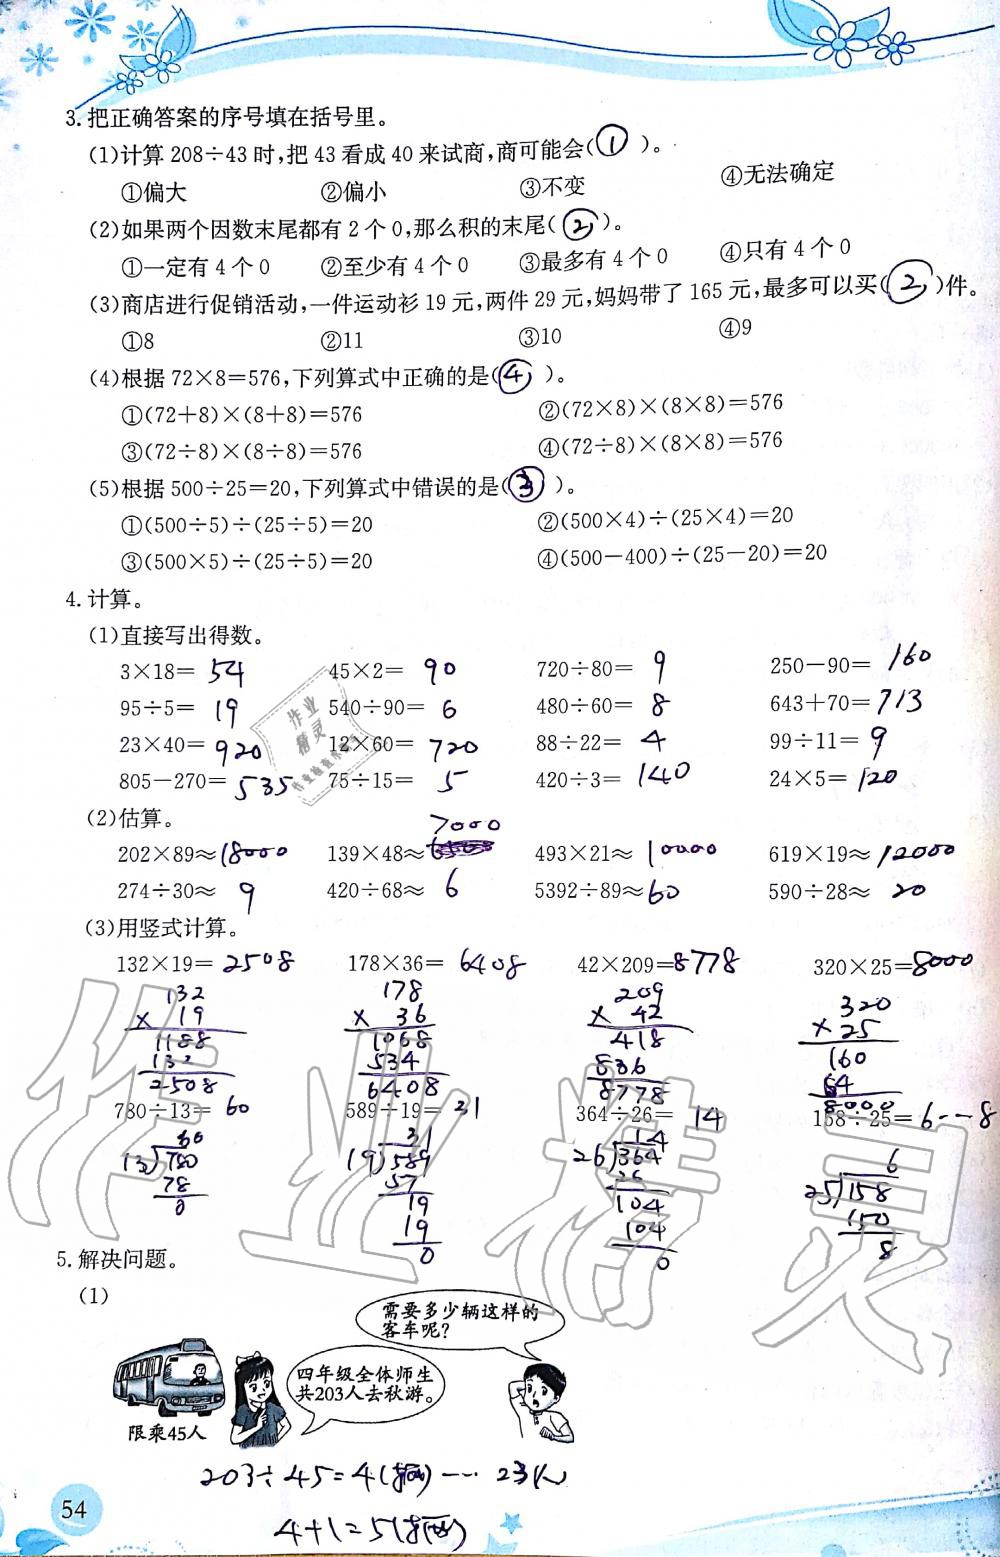 3.把正确答案的序号填在括号里。
(1)计算 208÷43 时,把 43 看成 40 来试商,商可能会( ① )。
①偏大 ②偏小 ③不变 ④无法确定
(2)如果两个因数末尾都有 2 个 0,那么积的末尾( ② )。
①一定有 4 个 0 ②至少有 4 个 0 ③最多有 4 个 0 ④只有 4 个 0
(3)商店进行促销活动,一件运动衫 19 元,两件 29 元,妈妈带了 165 元,最多可以买( ② )件。
①8 ②11 ③10 ④9
(4)根据 72×8=576,下列算式中正确的是( ④ )。
①(72+8)×(8+8)=576 ②(72×8)×(8×8)=576
③(72÷8)×(8÷8)=576 ④(72÷8)×(8×8)=576
(5)根据 500÷25=20,下列算式中错误的是( ③ )。
①(500÷5)÷(25÷5)=20 ②(500×4)÷(25×4)=20
③(500×5)÷(25÷5)=20 ④(500-400)÷(25-20)=20
4.计算。
(1)直接写出得数。
3×18= 54 45×2= 90 720÷80= 9 250-90= 160
95÷5= 19 540÷90= 6 480÷60= 8 643+70= 713
23×40= 920 12×60= 720 88÷22= 4 99÷11= 9
805-270= 535 75÷15= 5 420÷3= 140 24×5= 120
作业
精灵
(2)估算。
202×89≈ 18000 139×48≈ 7000 493×21≈ 10000 619×19≈ 12000
274÷30≈ 9 420÷68≈ 6 5392÷89≈ 60 590÷28≈ 20
(3)用竖式计算。
132×19= 2508 178×36= 6408 42×209= 8778 320×25= 8000
132 178 209 320
× 19 × 36 × 42 × 25
1188 1068 418 160
132 534 836 64
2508 6408 8778 8000
780÷13= 60 589÷19= 31 364÷26= 14 158÷25= 6--8
60 31 14 6
13)780 19)589 26)364 25)158
78 57 26 150
0 19 104 8
19 104
0 0
作业精灵
5.解决问题。
(1)
需要多少辆这样的
客车呢?
四年级全体师生
共203人去秋游。
限乘45人
203÷45=4(辆)…23人
4+1=5(辆)
54